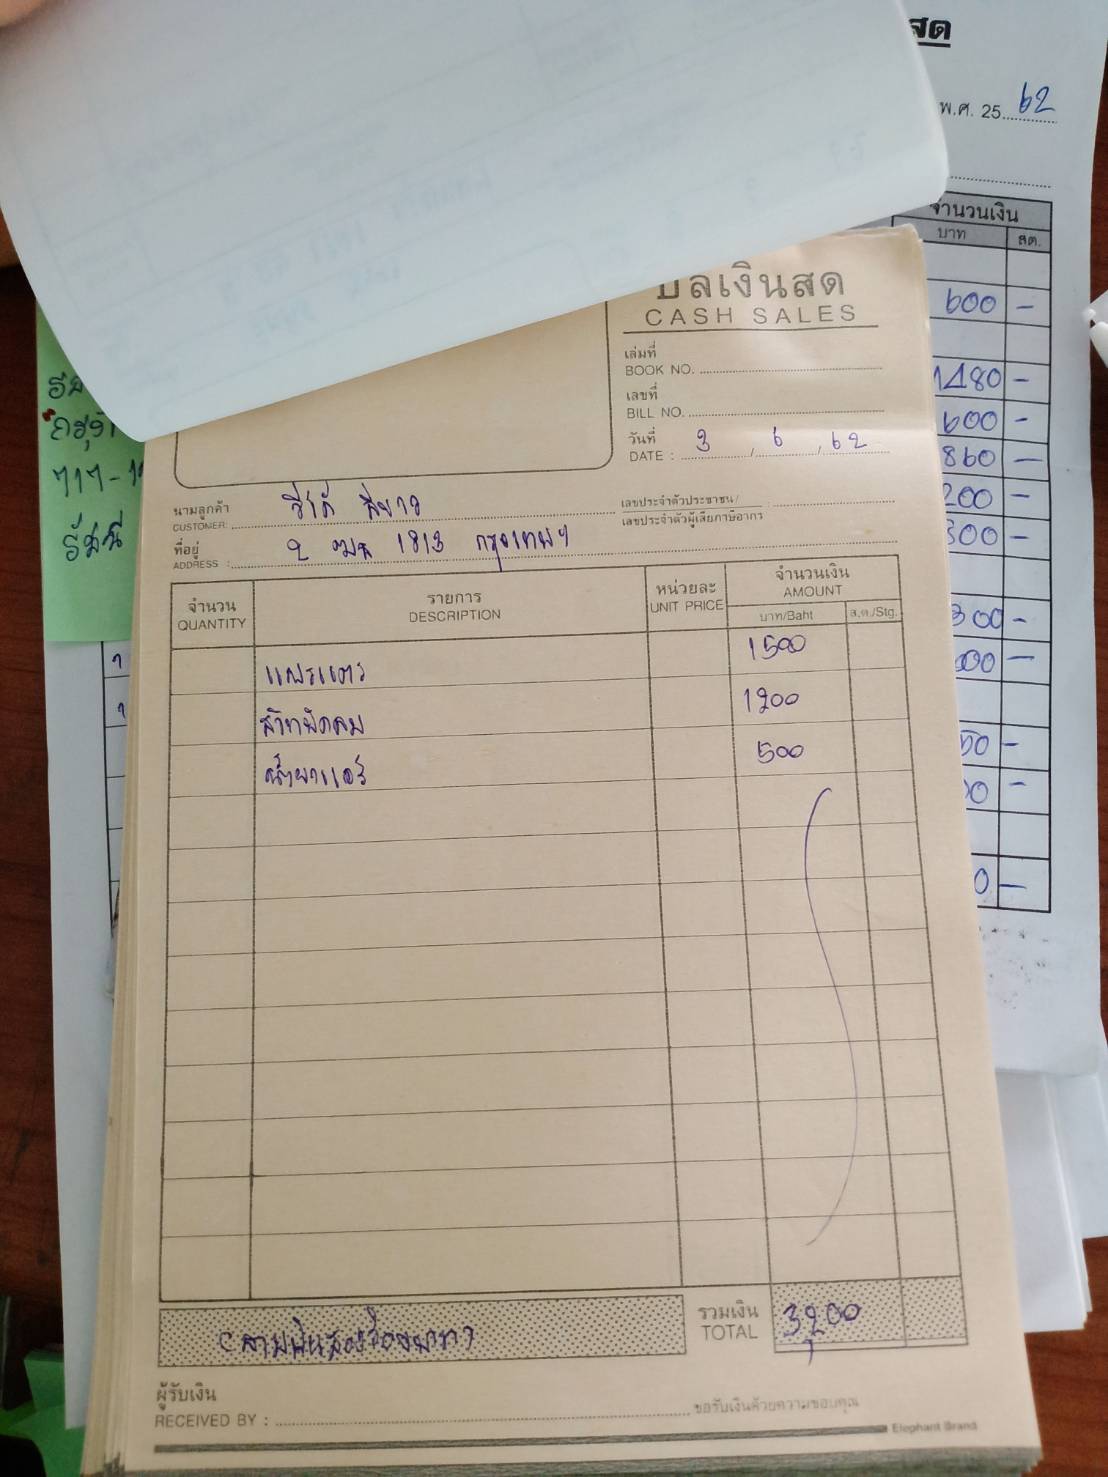 สด
พ.ศ. 25 62
จำนวนเงิน
บาท สต.
600 -
1480 -
600 -
860 -
200 -
300 -
300 -
บิลเงินสด
CASH SALES
เล่มที่
BOOK NO.
เลขที่
BILL NO.
วันที่
DATE : 3 / 6 / 62
นามลูกค้า
CUSTOMER:
เลขประจำตัวประชาชน/
เลขประจำตัวผู้เสียภาษีอากร
ที่อยู่
ADDRESS : 2 ฒฆ 1813 กรุงเทพฯ
จำนวน
QUANTITY
รายการ
DESCRIPTION
หน่วยละ
UNIT PRICE
จำนวนเงิน
AMOUNT
บาท/Baht ส.ต./Stg.
แผงแตร 1500
สวิทพัดลม 1200
น้ำยาแอร์ 500
(สามพันสองร้อยบาท)
รวมเงิน
TOTAL 3,200
ผู้รับเงิน
RECEIVED BY :
ขอรับเงินด้วยความขอบคุณ
Elephant Brand